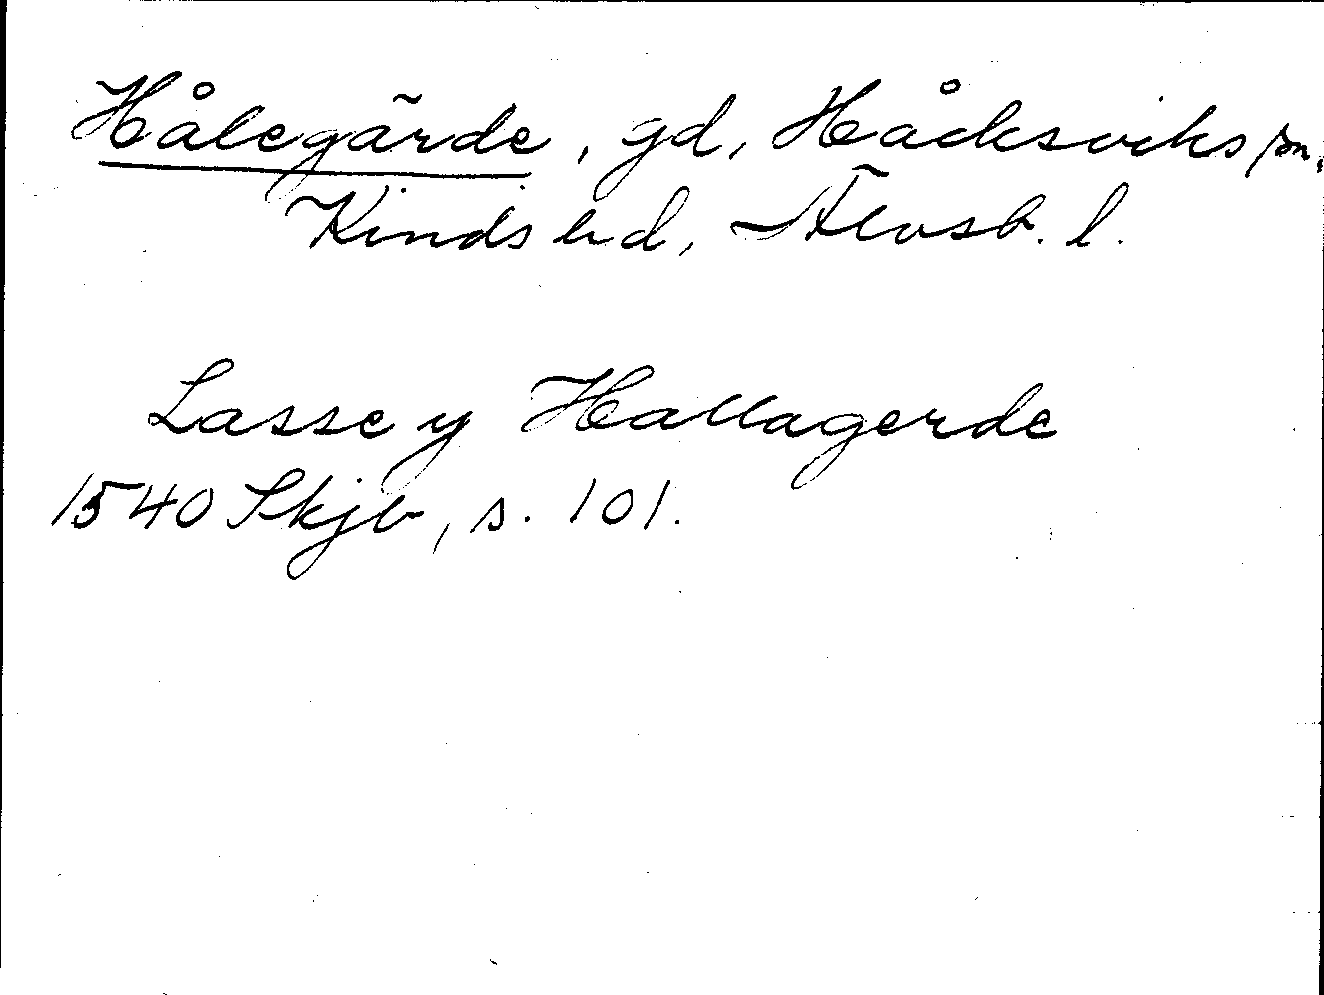 Hålegärde, gd, Håcksviks sn.
Kinds hd, Älvsb. l.
Lasse y Hallagerde
1540 Skjb, s. 101.